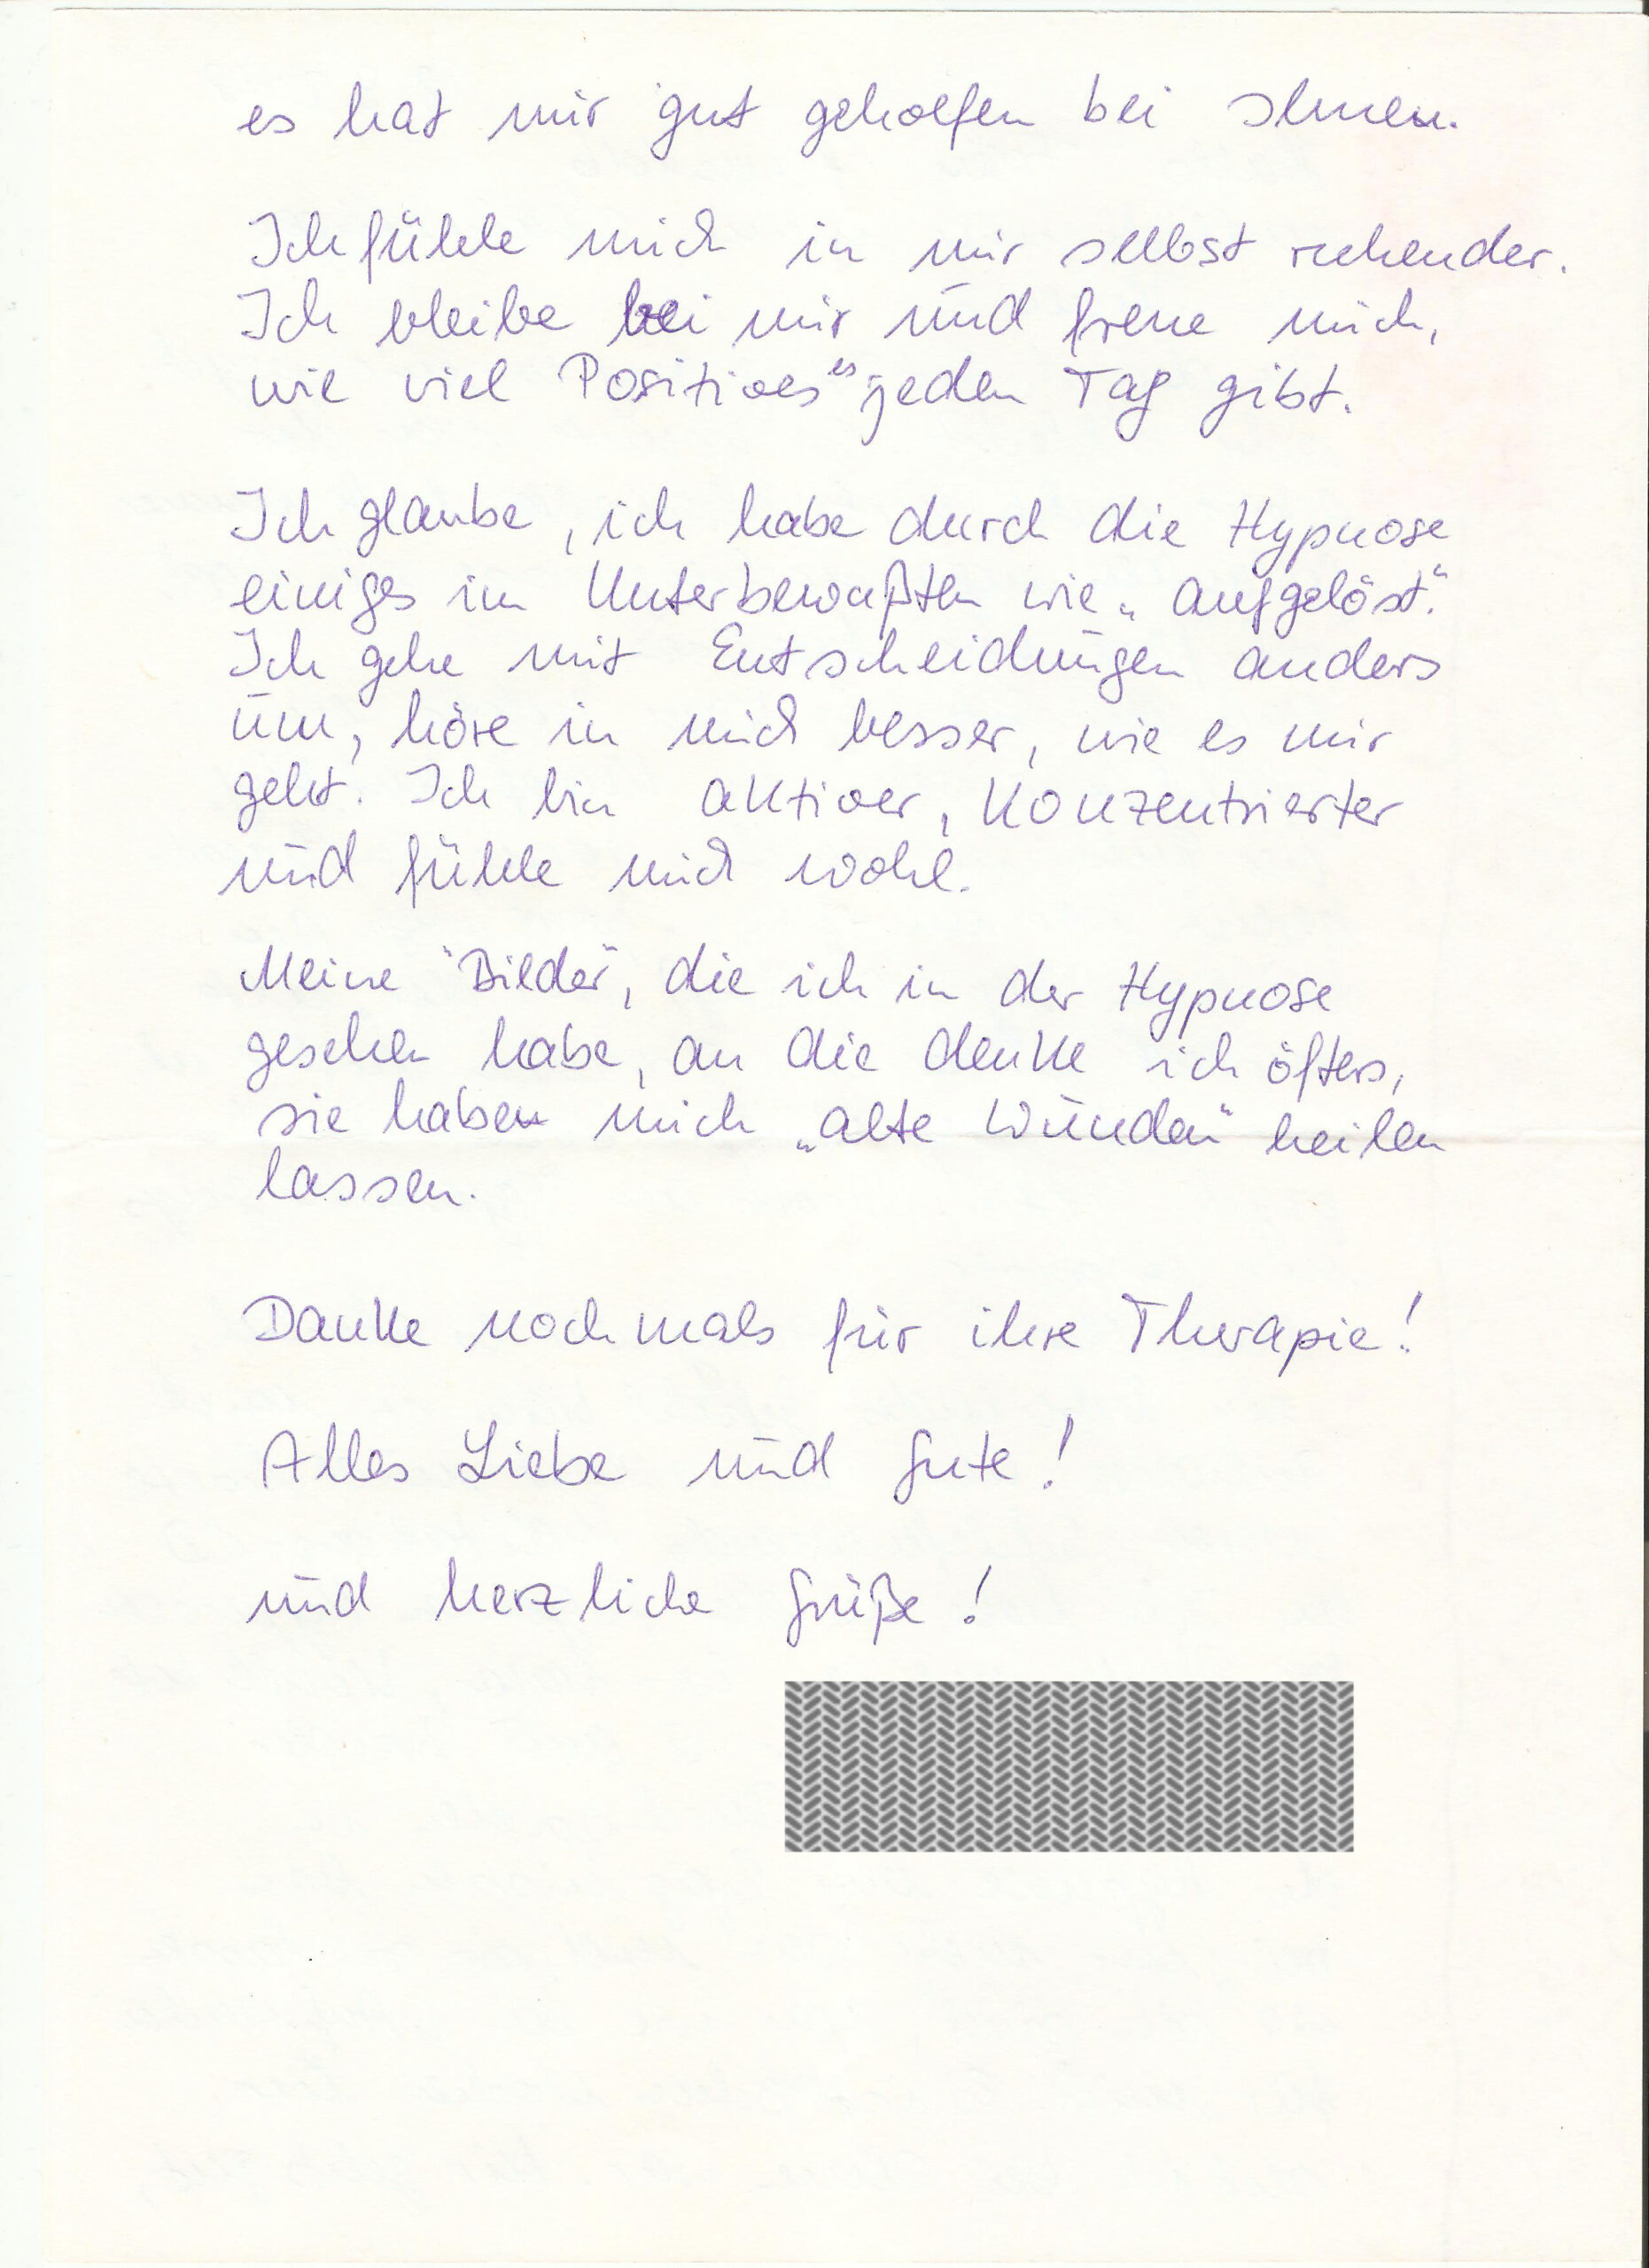 es hat mir gut geholfen bei Ihnen.
Ich fühle mich in mir selbst ruhender.
Ich bleibe bei mir und freue mich,
wie viel Positives es jeden Tag gibt.
Ich glaube, ich habe durch die Hypnose
einiges im Unterbewußten wie „aufgelöst“.
Ich gehe mit Entscheidungen anders
um, höre in mich besser, wie es mir
geht. Ich bin aktiver, konzentrierter
und fühle mich wohl.
Meine "Bilder", die ich in der Hypnose
gesehen habe, an die denke ich öfters,
sie haben mich „alte Wunden“ heilen
lassen.
Danke nochmals für ihre Therapie!
Alles Liebe und Gute!
und herzliche Grüße!